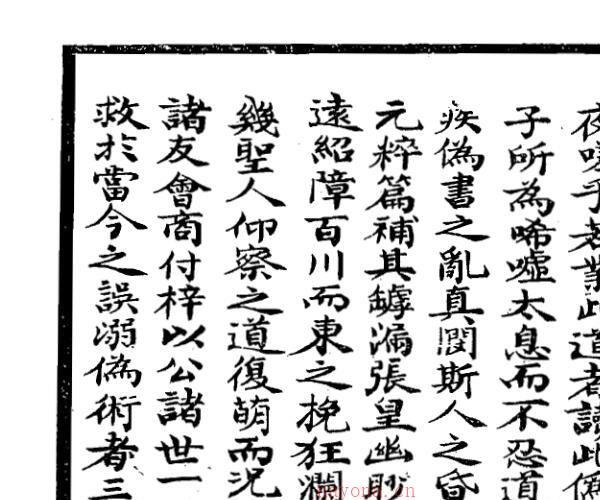 乎若業此道者讀此偽
子所為唏噓太息而不忍道
疾偽書之亂真閔斯人之昏
元粹篇補其罅漏張皇幽眇
遠紹障百川而東之挽狂瀾
幾聖人仰察之道復萌而況
諸友會商付梓以公諸世一
救扵當今之誤溺偽術者三